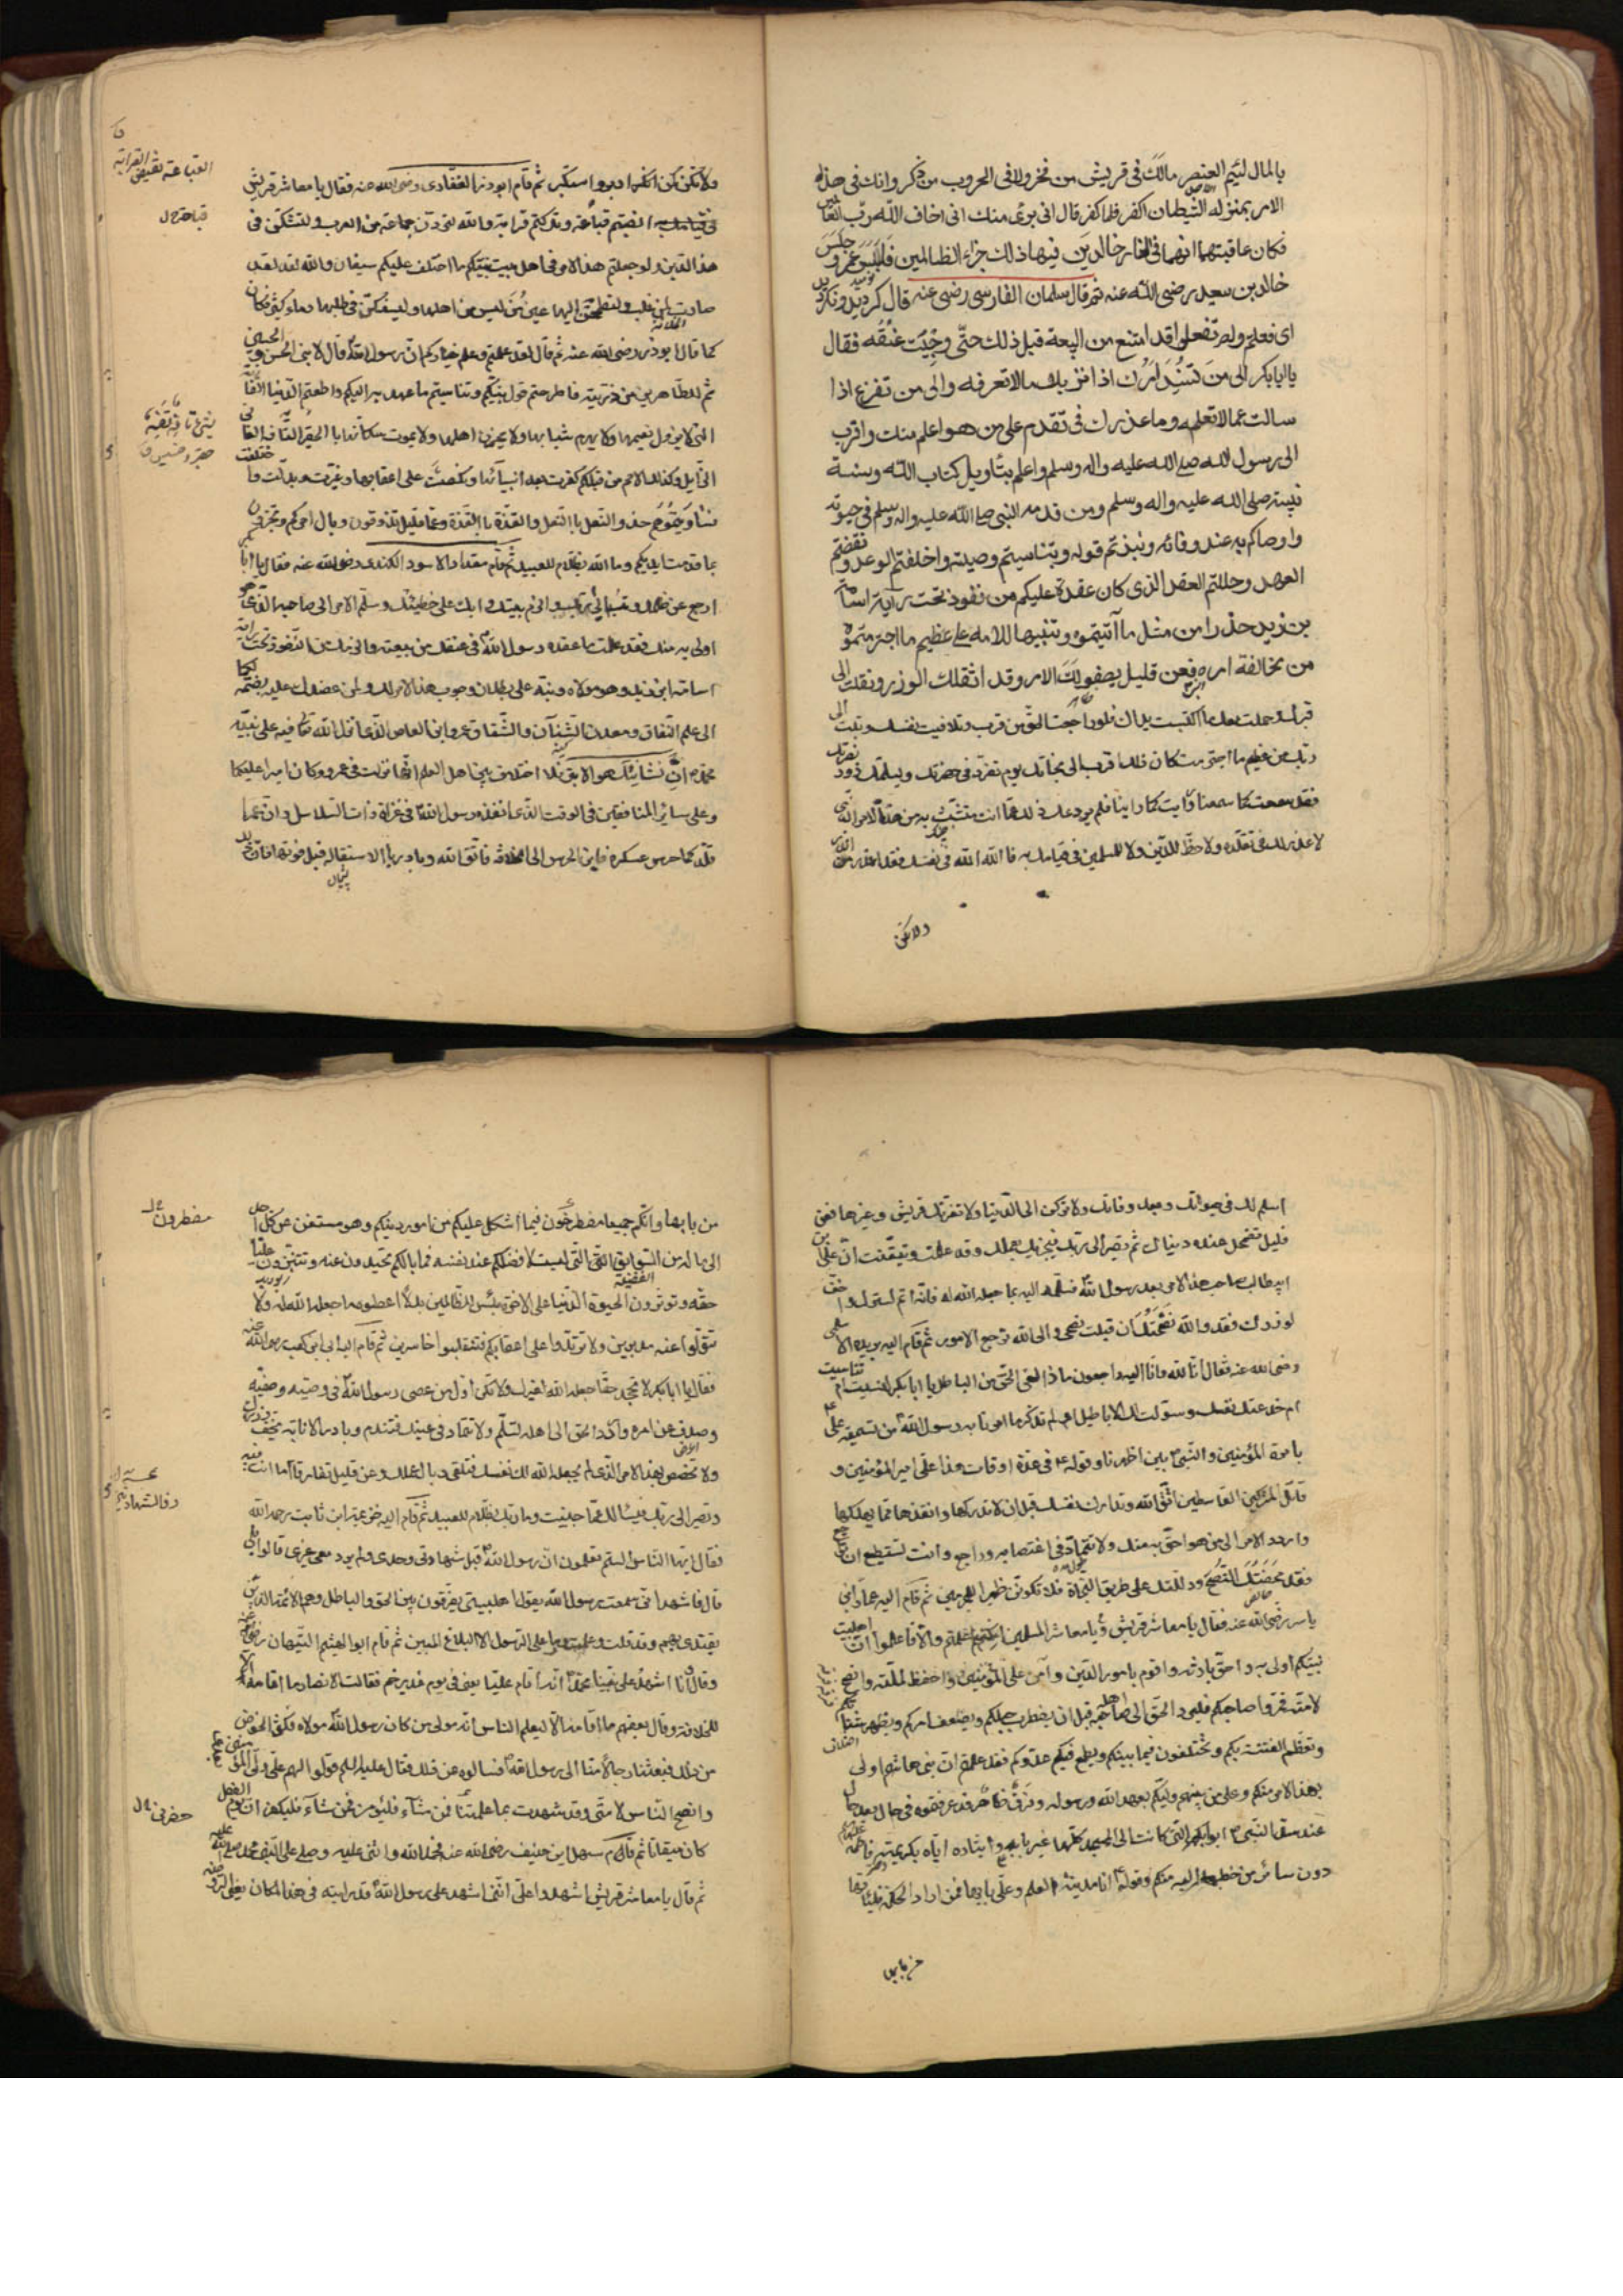 بالمال لئيم العنصر مالك فى قريش من فخر ولا فى الحروب من ذكر وانك فى هذا
الامر بمنزله الشيطان اذ قال للانسان اكفر فلما كفر قال انى برئ منك انى اخاف الله رب العالمين
فكان عاقبتهما انهما فى النار خالدين فيها ذلك جزاء الظالمين فابلس عمر وجلس
خالد بن سعيد رضى الله عنه ثم قال سلمان الفارسى رضى عنه قال كرديد ونكرديد
اى فعلتم ولم تفعلوا قد امتنع من البيعة قبل ذلك حتى وجئت عنقه فقال
يا ابا بكر الى من تسند امرك اذا نزل بك مالا تعرفه والى من تفزع اذا
سالت عما لا تعلمه وما عذرك فى تقدم على من هو اعلم منك واقرب
الى رسول الله صلى الله عليه واله وسلم واعلم بتاويل كتاب الله وسنة
نبيه صلى الله عليه واله وسلم ومن قدمه النبى صلى الله عليه واله وسلم فى حيوته
واوصاكم به عند وفاته ونبذتم قوله وتناسيتم وصيته واخلفتم الوعد ونقضتم
العهد وحللتم العقد الذى كان عقده عليكم من نفوذ تحت راية اسامة
بن زيد حذرا من مثل ما آتيتموه وتنبيها للامه على عظيم ما اجترمتموه
من مخالفة امره فعن قليل يصفو لك الامر وقد اثقلك الوزر ونقلت الى
قبرك وحملت معك ما اكتسبت يداك فلو راجعت الحق من قرب وتلافيت نفسك وتبت الى
ربك من عظيم ما اجترمت كان ذلك اقرب الى نجاتك يوم تفرد فى حفرتك ويسلمك ذوو نصرتك
فقد سمعت كما سمعنا ورايت كما راينا فلم يردعك ذلك عما انت متشبث به من هذا الامر الذى
لا عذر لك فى تقلده ولا حظ للدين ولا للمسلمين فى قيامك به فالله الله فى نفسك فقد اعذر من انذر
ولاتكن
ولا تكن كمن ادبر واستكبر ثم قام ابو ذر الغفارى رضى الله عنه فقال يا معاشر قريش
اصبتم قباعة وتركتم قرابة والله لترتدن جماعة من العرب ولتشكن فى
هذا الدين ولو جعلتم هذا الامر فى اهل بيت نبيكم ما اختلف عليكم سيفان والله لقد
صارت لمن غلب ولتطمحن اليها عين من ليس من اهلها وليسفكن فى طلبها دماء كثيرة فكان
كما قال ابو ذر رضى الله عنه ثم قال لقد علمتم وعلم خياركم ان رسول الله قال
ثم للطاهرين من ذريته فاطرحتم قول نبيكم وتناسيتم ما عهد به اليكم واطعتم الدنيا
ولا يهرم شبابها ولا يحزن اهلها ولا يموت سكانها بالحقير التافه الفانى
الزايل وكذلك الامم من قبلكم كفرت بعد انبيائها ونكصت على اعقابها وغيرت وبدلت
حذو النعل بالنعل والقذة بالقذة وعما قليل تذوقون وبال امركم وتجزون
بما قدمت ايديكم وما الله بظلام للعبيد ثم قام مقداد الاسود الكندى رضى الله عنه فقال يا ابا
وابك على خطيئتك وسلم الامر الى صاحبه الذى هو
اولى به منك فقد علمت ما عقده رسول الله فى عنقك من بيعته والزمك من النفوذ تحت راية
اسامة ابن زيد وهو مولاه ونبه على بطلان وجوب هذا الامر لك
الى علم النفاق ومعدن الشنآن والشقاق عمرو ابن العاص الذى انزل الله فيه على نبيه
محمد ان شانئك هو الابتر فلا اختلاف بين اهل العلم انها نزلت فى عمرو وكان اميرا عليكما
وعلى سائر المنافقين فى الوقت الذى انفذه رسول الله فى غزاة ذات السلاسل
قلدكما حرس عسكره فاين الحرس الى الخلافة فاتق الله وبادر الاستقاله قبل فوتها
اسلم لك فى حيوتك وبعد وفاتك ولا تركن الى الدنيا ولا تغرنك قريش وغيرها فعن
قليل تضمحل عنك دنياك ثم تصير الى ربك فيجزيك بعملك وقد علمت وتيقنت ان على بن
ابى طالب صاحب هذا الامر بعد رسول الله فسلمه اليه بما جعله الله له فانه اتم لسترك واخف
لوزرك فقد والله نصحتك ان قبلت نصحى والى الله ترجع الامور ثم قام اليه بريدة الاسلمى
رضى الله عنه فقال انا لله وانا اليه راجعون ماذا لقى الحق من الباطل يا ابا بكر انسيت ام تناسيت
ام خدعتك نفسك وسولت لك الاباطيل او لم تذكر ما امرنا به رسول الله من تسمية على
بامرة المؤمنين والنبى بين اظهرنا وقوله فى عدة اوقات هذا على امير المؤمنين و
قاتل القاسطين اتق الله وتدارك نفسك قبل ان لا تدركها وانقذها مما يهلكها
واردد الامر الى من هو احق به منك ولا تتماد فى اغتصابه وراجع وانت تستطيع ان
فقد محضتك النصح ودللتك على طريق النجاة فلا تكونن ظهيرا للمجرمين ثم قام اليه عمار ابن
ياسر رضى الله عنه فقال يا معاشر قريش ويا معاشر المسلمين ان كنتم علمتم والا فاعلموا ان اهل بيت
نبيكم اولى به واحق بارثه واقوم بامور الدين وآمن على المؤمنين واحفظ لملته وانصح
لامته فمروا صاحبكم فليرد الحق الى اهله قبل ان يضطرب حبلكم ويضعف امركم ويظهر شتاتكم
وتعظم الفتنة بكم وتختلفون فيما بينكم ويطمع فيكم عدوكم فقد علمتم ان بنى هاشم اولى
بهذا الامر منكم وعلى من بينهم وليكم بعهد الله ورسوله وفرق ظاهر قد عرفتموه فى حال بعد حال
عند سد النبى ابوابكم التى كانت الى المسجد كلها غير بابه وايثاره اياه بكريمته فاطمة
دون سائر من خطبها اليه منكم وقوله انا مدينة العلم وعلى بابها فمن اراد الحكمة فلياتها
من بابها
من بابها وانكم جميعا مصطرخون فيما اشكل عليكم من امور دينكم وهو مستغن عن كل احد
الى ماله من السوابق التى ليست لافضلكم عند نفسه فما بالكم تحيدون عنه
حقه وتوثرون الحيوة الدنيا على الاخرة بئس للظالمين بدلا اعطوه ما جعله الله له ولا
تتولوا عنه مدبرين ولا ترتدوا على اعقابكم فتنقلبوا خاسرين ثم قام اليه ابى ابن كعب رضى الله عنه
فقال يا ابا بكر لا تجحد حقا جعله الله لغيرك ولا تكن اول من عصى رسول الله فى وصيه وصفيه
وصدف عن امره واردد الحق الى اهله تسلم ولا تتماد فى غيك فتندم وبادر الانابة يخف وزرك
ولا تخصص بهذا الامر الذى لم يجعله الله لك نفسك فتلقى وبال عملك وعن قليل تفارق ما انت فيه
وتصير الى ربك فيسالك عما جنيت وما ربك بظلام للعبيد ثم قام اليه خزيمة ابن ثابت رحمه الله
فقال ايها الناس الستم تعلمون ان رسول الله قبل شهادتى وحدى ولم يرد معى غيرى قالوا بلى
قال فاشهد انى سمعت رسول الله يقول اهل بيتى يفرقون بين الحق والباطل وهم الائمة الذين
يقتدى بهم وقد قلت ما علمت وما على الرسول الا البلاغ المبين ثم قام ابو الهيثم التيهان رضى الله عنه
وقال وانا اشهد على نبينا محمد انه اقام عليا يعنى فى يوم غدير خم فقالت الانصار ما اقامه الا
للخلافة وقال بعضهم ما اقامه الا ليعلم الناس انه مولى من كان رسول الله مولاه فكثر الخوض
من ذلك فبعثنا رجالا منا الى رسول الله فسالوه عن ذلك فقال عليه السلم قولوا لهم على ولى المؤمنين
وانصح الناس لامتى وقد شهدت بما علمته فمن شاء فليؤمن ومن شاء فليكفر ان يوم الفصل
كان ميقاتا ثم قام سهل ابن حنيف رضى الله عنه فحمد الله واثنى عليه وصلى على النبى محمد صلى الله عليه
ثم قال يا معاشر قريش اشهدوا على انى اشهد على رسول الله قد رايته فى هذا المكان يعنى الروضة